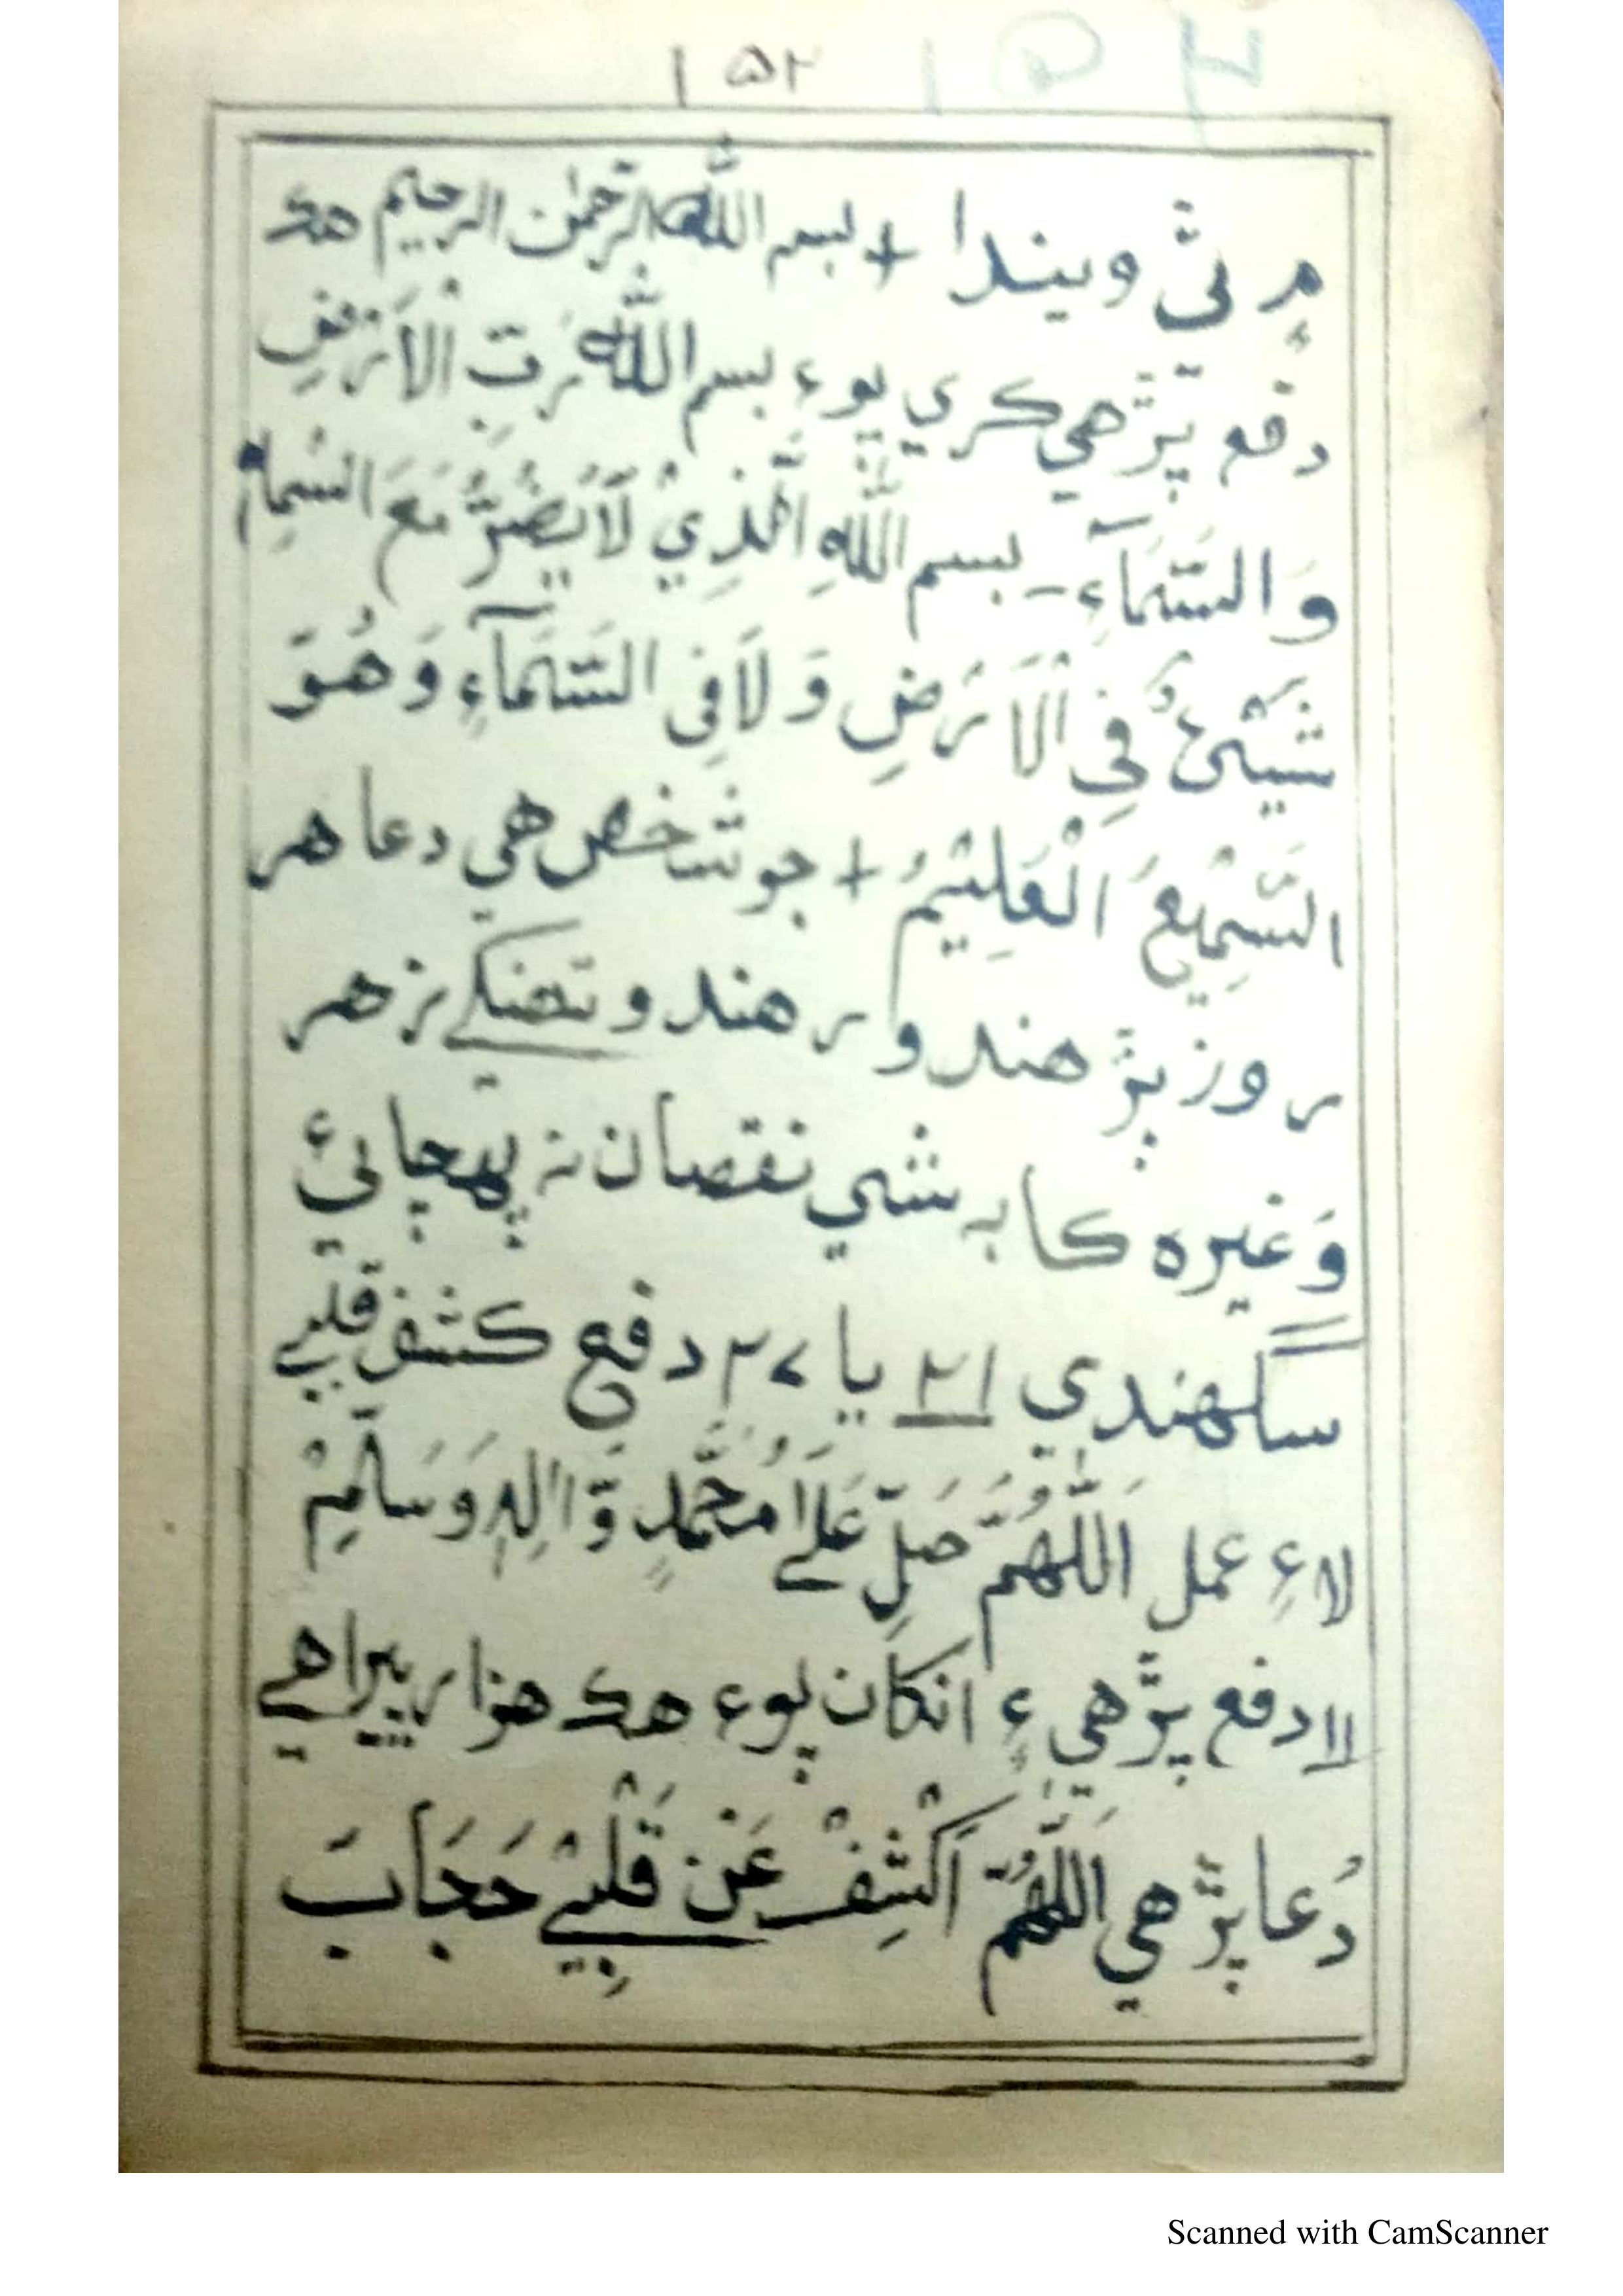 ۱۵۲
۾ ٿي ويندا + بسم اللہ الرحمٰن الرحیم هڪ
دفع پڙهي ڪري پوء بسم اللہ رَبِّ الْاَرْضِ
وَالسَّمَآءِ ـ بسم اللہِ الَّذِيْ لَا يَضُرُّ مَعَ اسْمِہٖ
شَيْئٌ فِي الْاَرْضِ وَلَا فِي السَّمَآءِ وَهُوَ
السَّمِيْعُ الْعَلِيْمُ + جو شخص هي دعا هر
روز پڙهندو رهندو تنهنکے زهر
وَغيره ڪابہ شي نقصان نہ پهچائي
سگهندي ۲۱ يا ۲۷ دفع ڪشف قلبي
لاءِ عمل اَللّٰهُمَّ صَلِّ عَلےٰ مُحَمَّدٍ وَّاٰلِہٖ وَسَلِّمْ
۱۱ دفع پڙهي ءِ انکان پوء هڪ هزار ڀيرا هي
دُعا پڙهي اَللّٰهُمَّ اكْشِفْ عَنْ قَلْبِيْ حَجَابَ
Scanned with CamScanner